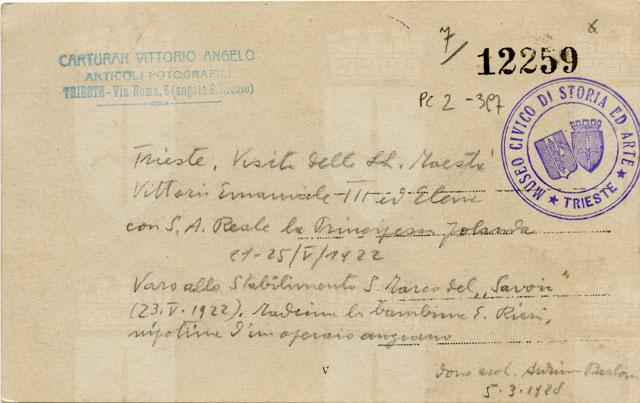 CARTURAN VITTORIO ANGELO
ARTICOLI FOTOGRAFICI
TRIESTE - Via Roma, 6 (angolo S. Nicolò)
7/
12259
x
PC 2 - 397
MUSEO CIVICO DI STORIA ED ARTE
★ TRIESTE ★
Trieste, Visita delle LL. Maestà
Vittorio Emanuele III ed Elena
con S. A. Reale la Principessa Jolanda
21-25/V/1922
Varo allo Stabilimento S. Marco del "Savoia"
(23.V.1922). Madrina la bambina E. Riesi,
nipotina d'un operaio anziano
v
Dono
5.3.1928